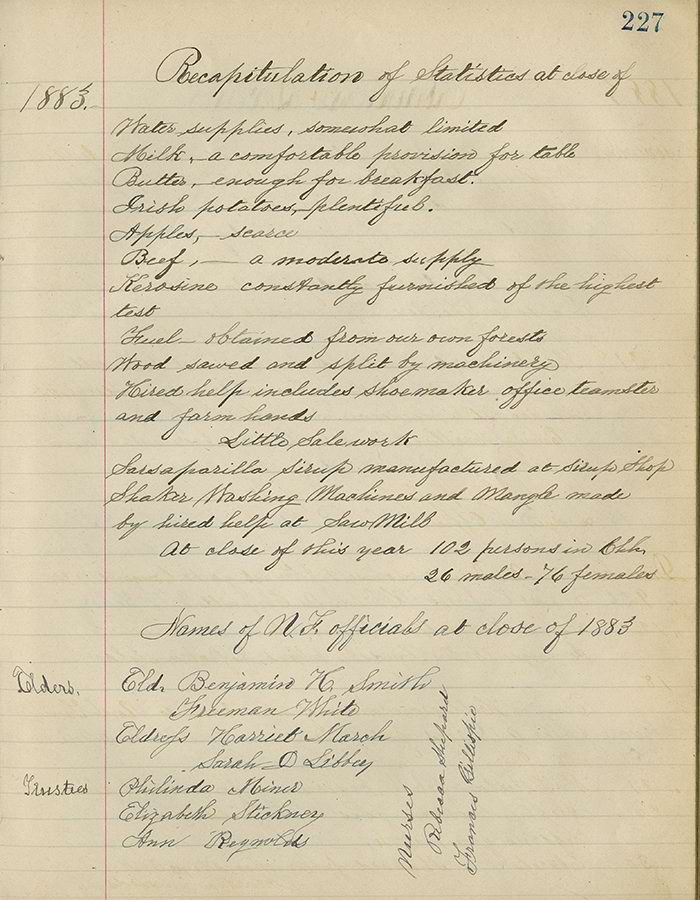 227
Recapitulation of Statistics at close of
1883.
Water supplies, somewhat limited
Milk, a comfortable provision for table
Butter, enough for breakfast.
Irish potatoes, plentiful.
Apples, scarce
Beef, — a moderate supply
Kerosine constantly furnished of the highest
test
Fuel – obtained from our own forests
Wood sawed and split by machinery
Hired help includes shoemaker office teamster
and farm hands
Little Sale work
Sarsaparilla sirup manufactured at sirup Shop
Shaker Washing Machines and Mangle made
by hired help at Saw Mill
At close of this year 102 persons in Chh.
26 males – 76 females
Names of N. F. officials at close of 1883
Elders. Eld. Benjamin H. Smith
Freeman White
Eldress Harriet March
Sarah D Libbey
Trustees Philinda Miner
Elizabeth Stickney
Ann Reynolds
Nurses
Rebecca Shepard
Frances Gillispie